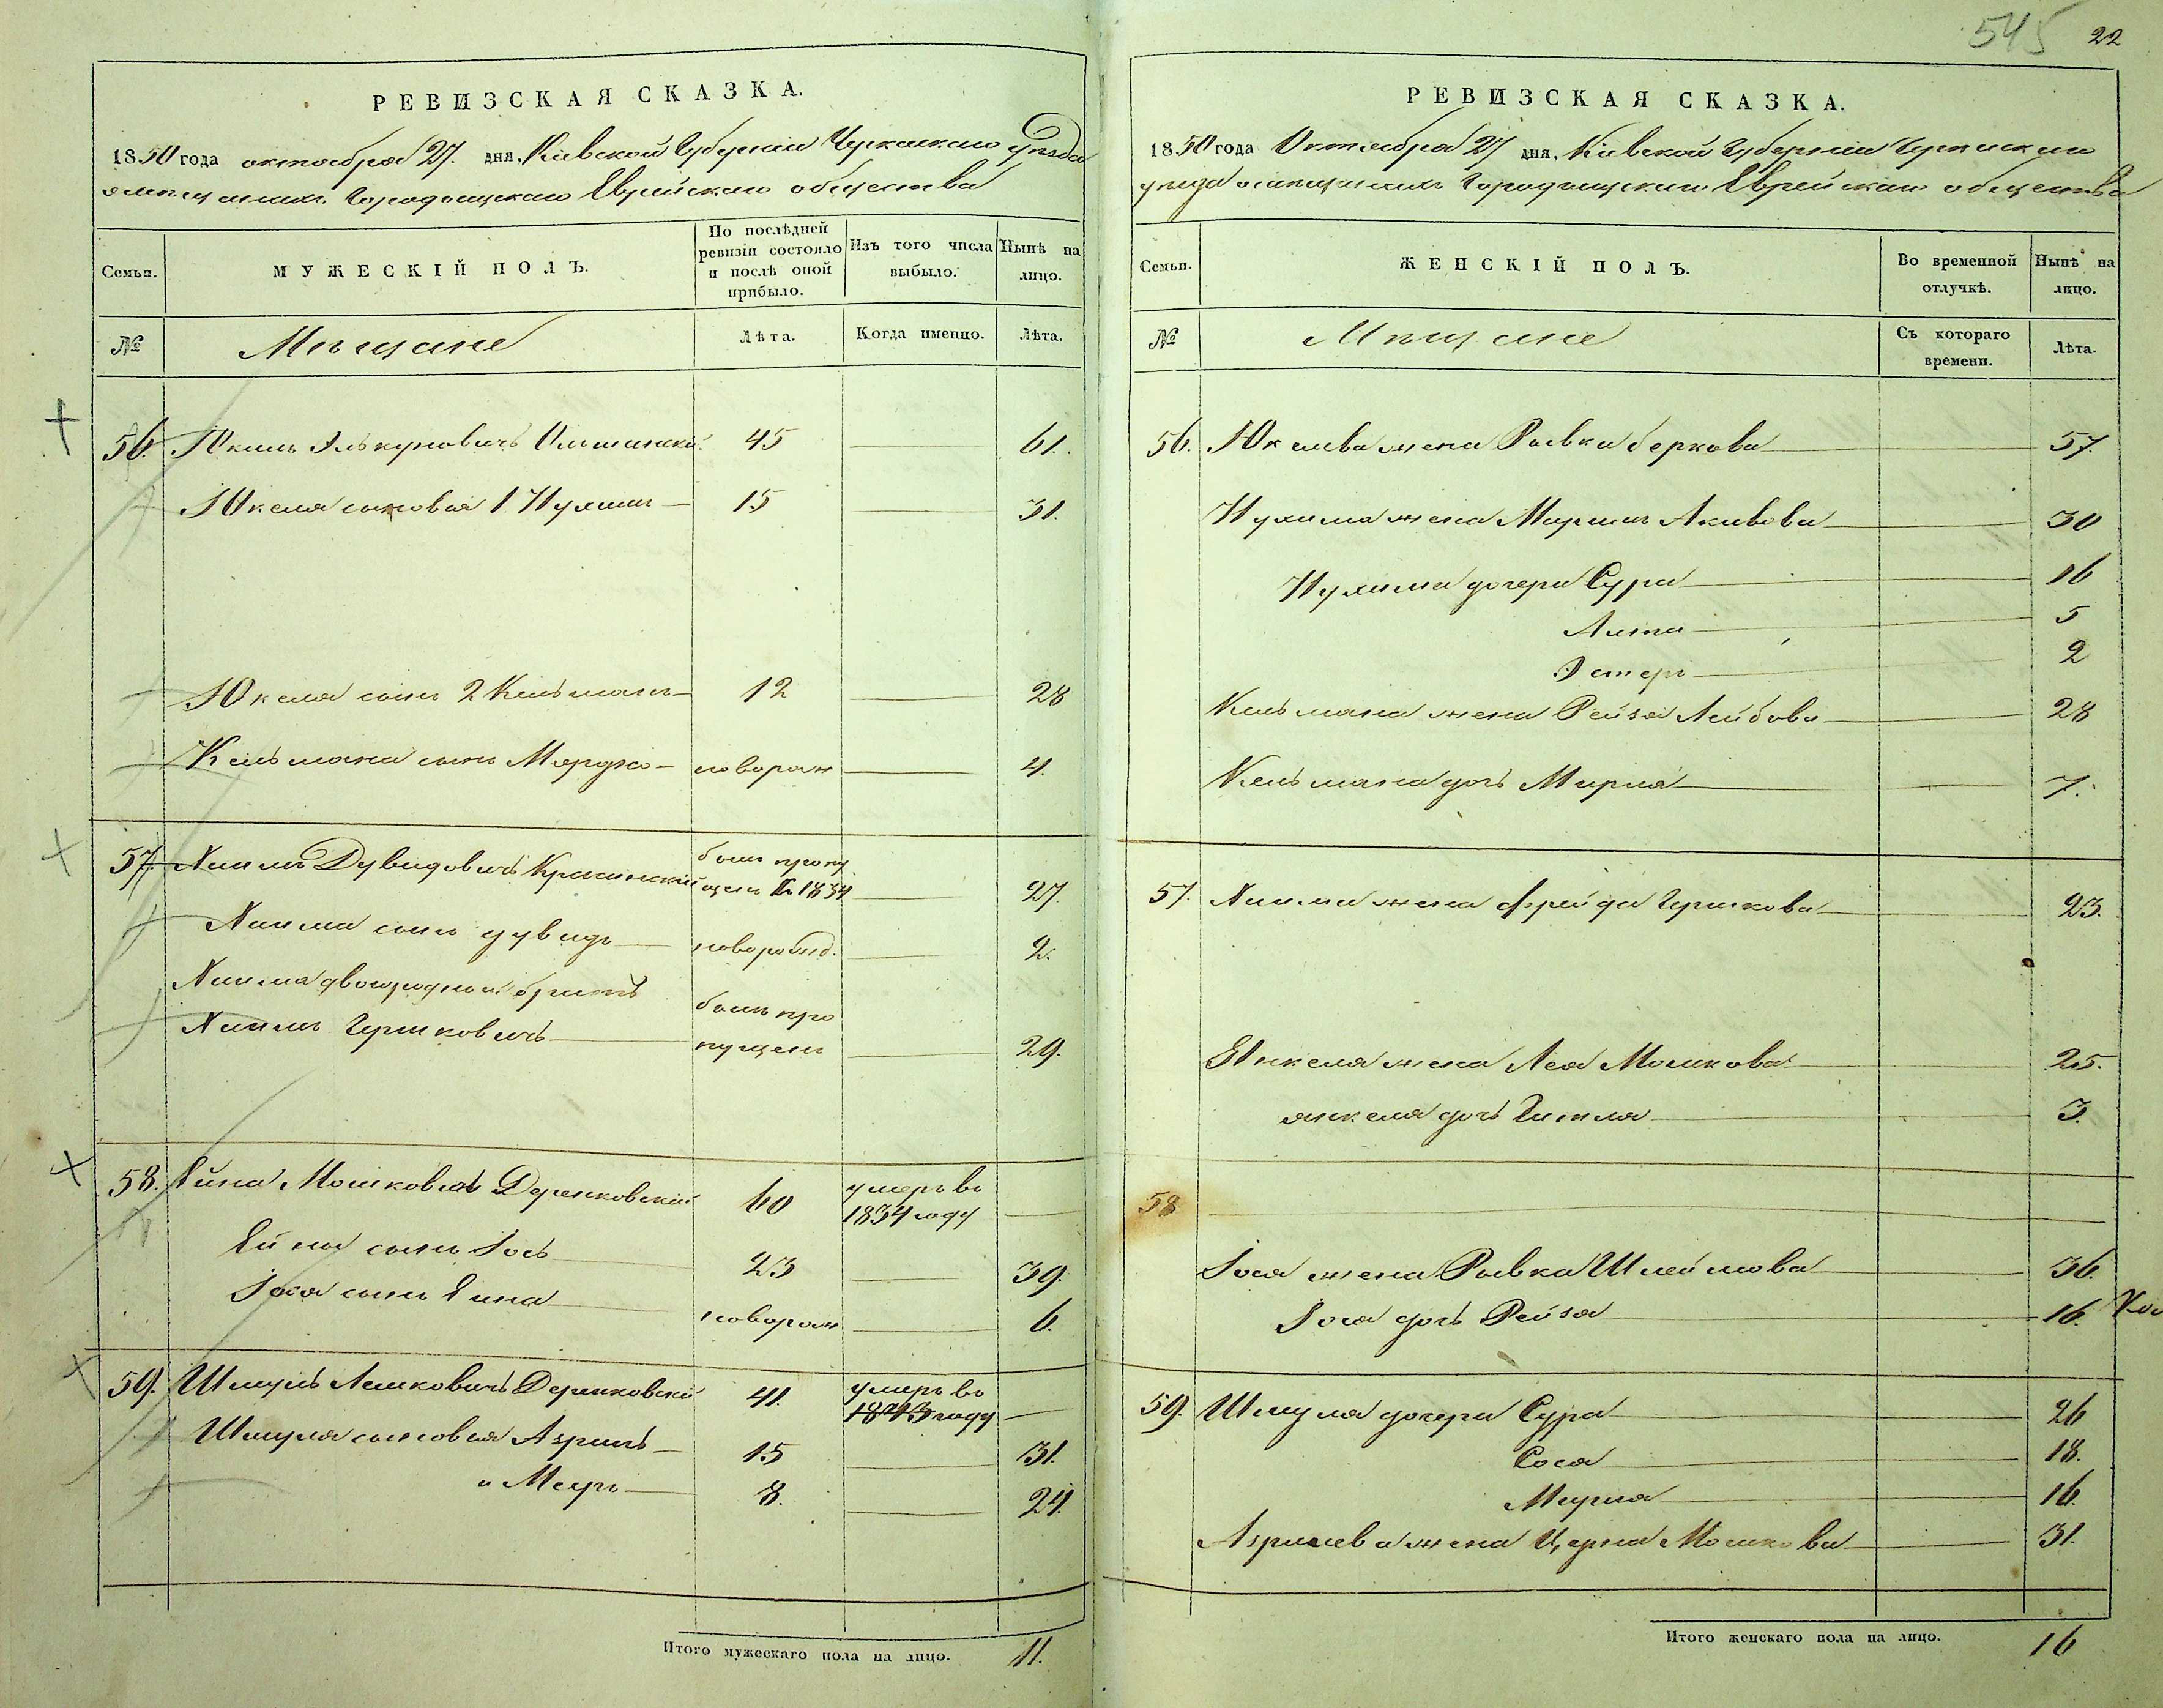 545 22
РЕВИЗСКАЯ СКАЗКА.
1850 года октября 27. дня, Кіевской Губерніи Черкаскаго уѣзда
о мѣщанахъ Городищскаго Еврейскаго общества
Семьи.
МУЖЕСКІЙ ПОЛЪ.
По послѣдней ревизіи состояло и послѣ оной прибыло.
Изъ того числа выбыло.
Нынѣ на лицо.
№
Мѣщане
Лѣта.
Когда именно.
Лѣта.
56. Юкель Элькуновичъ 45 61.
Юкеля сыновья 1 Нухимъ 15 31.
Юкеля сынъ 2 Кельманъ 12 28
Кельмана сынъ Мордко новорож 4.
57. Хаимъ Дувидовичъ Красинскій былъ пропу
щенъ въ 1834 27.
Хаима сынъ дувидъ новорожд. 2.
Хаима двоюродный братъ
Гершковичъ былъ про
пущенъ 29.
58. Мошковичъ Деренковскій 60 умеръ въ
1834 году
сынъ Іось 23 39.
Іося сынъ новорож 6.
59. Шмуль Лейковичъ Деренковскій 41. умеръ въ
1843 году
Шмуля сыновья Азриль 15 31.
и Мееръ 8. 24.
Итого мужескаго пола на лицо. 11.
РЕВИЗСКАЯ СКАЗКА.
1850 года Октября 27 дня, Кіевской Губерніи Черкаскаго
уѣзда о мѣщанахъ Городищскаго Еврейскаго общества
Семьи.
ЖЕНСКІЙ ПОЛЪ.
Во временной отлучкѣ.
Нынѣ на лицо.
№
Мѣщане
Съ котораго времени.
Лѣта.
56. Юкелева жена Ривка беркова 57.
Нухима жена Марьимъ Акивова 30
Нухима дочери Сура 16
5
Эстеръ 2
Кельмана жена Рейзя Лейбова 28
Кельмана дочь Мирля 7.
57. Хаима жена фрейда Гершкова 23.
Янкеля жена Лея Мошкова 25.
янкеля дочь Гитля 3.
58
Іося жена Ривка Шлеймова 36.
Іося дочь Рейзя 16.
59. Шмуля дочери Сура 26
Сося 18.
Мирля 16.
Азрилева жена Церна Мошкова 31.
Итого женскаго пола на лицо. 16